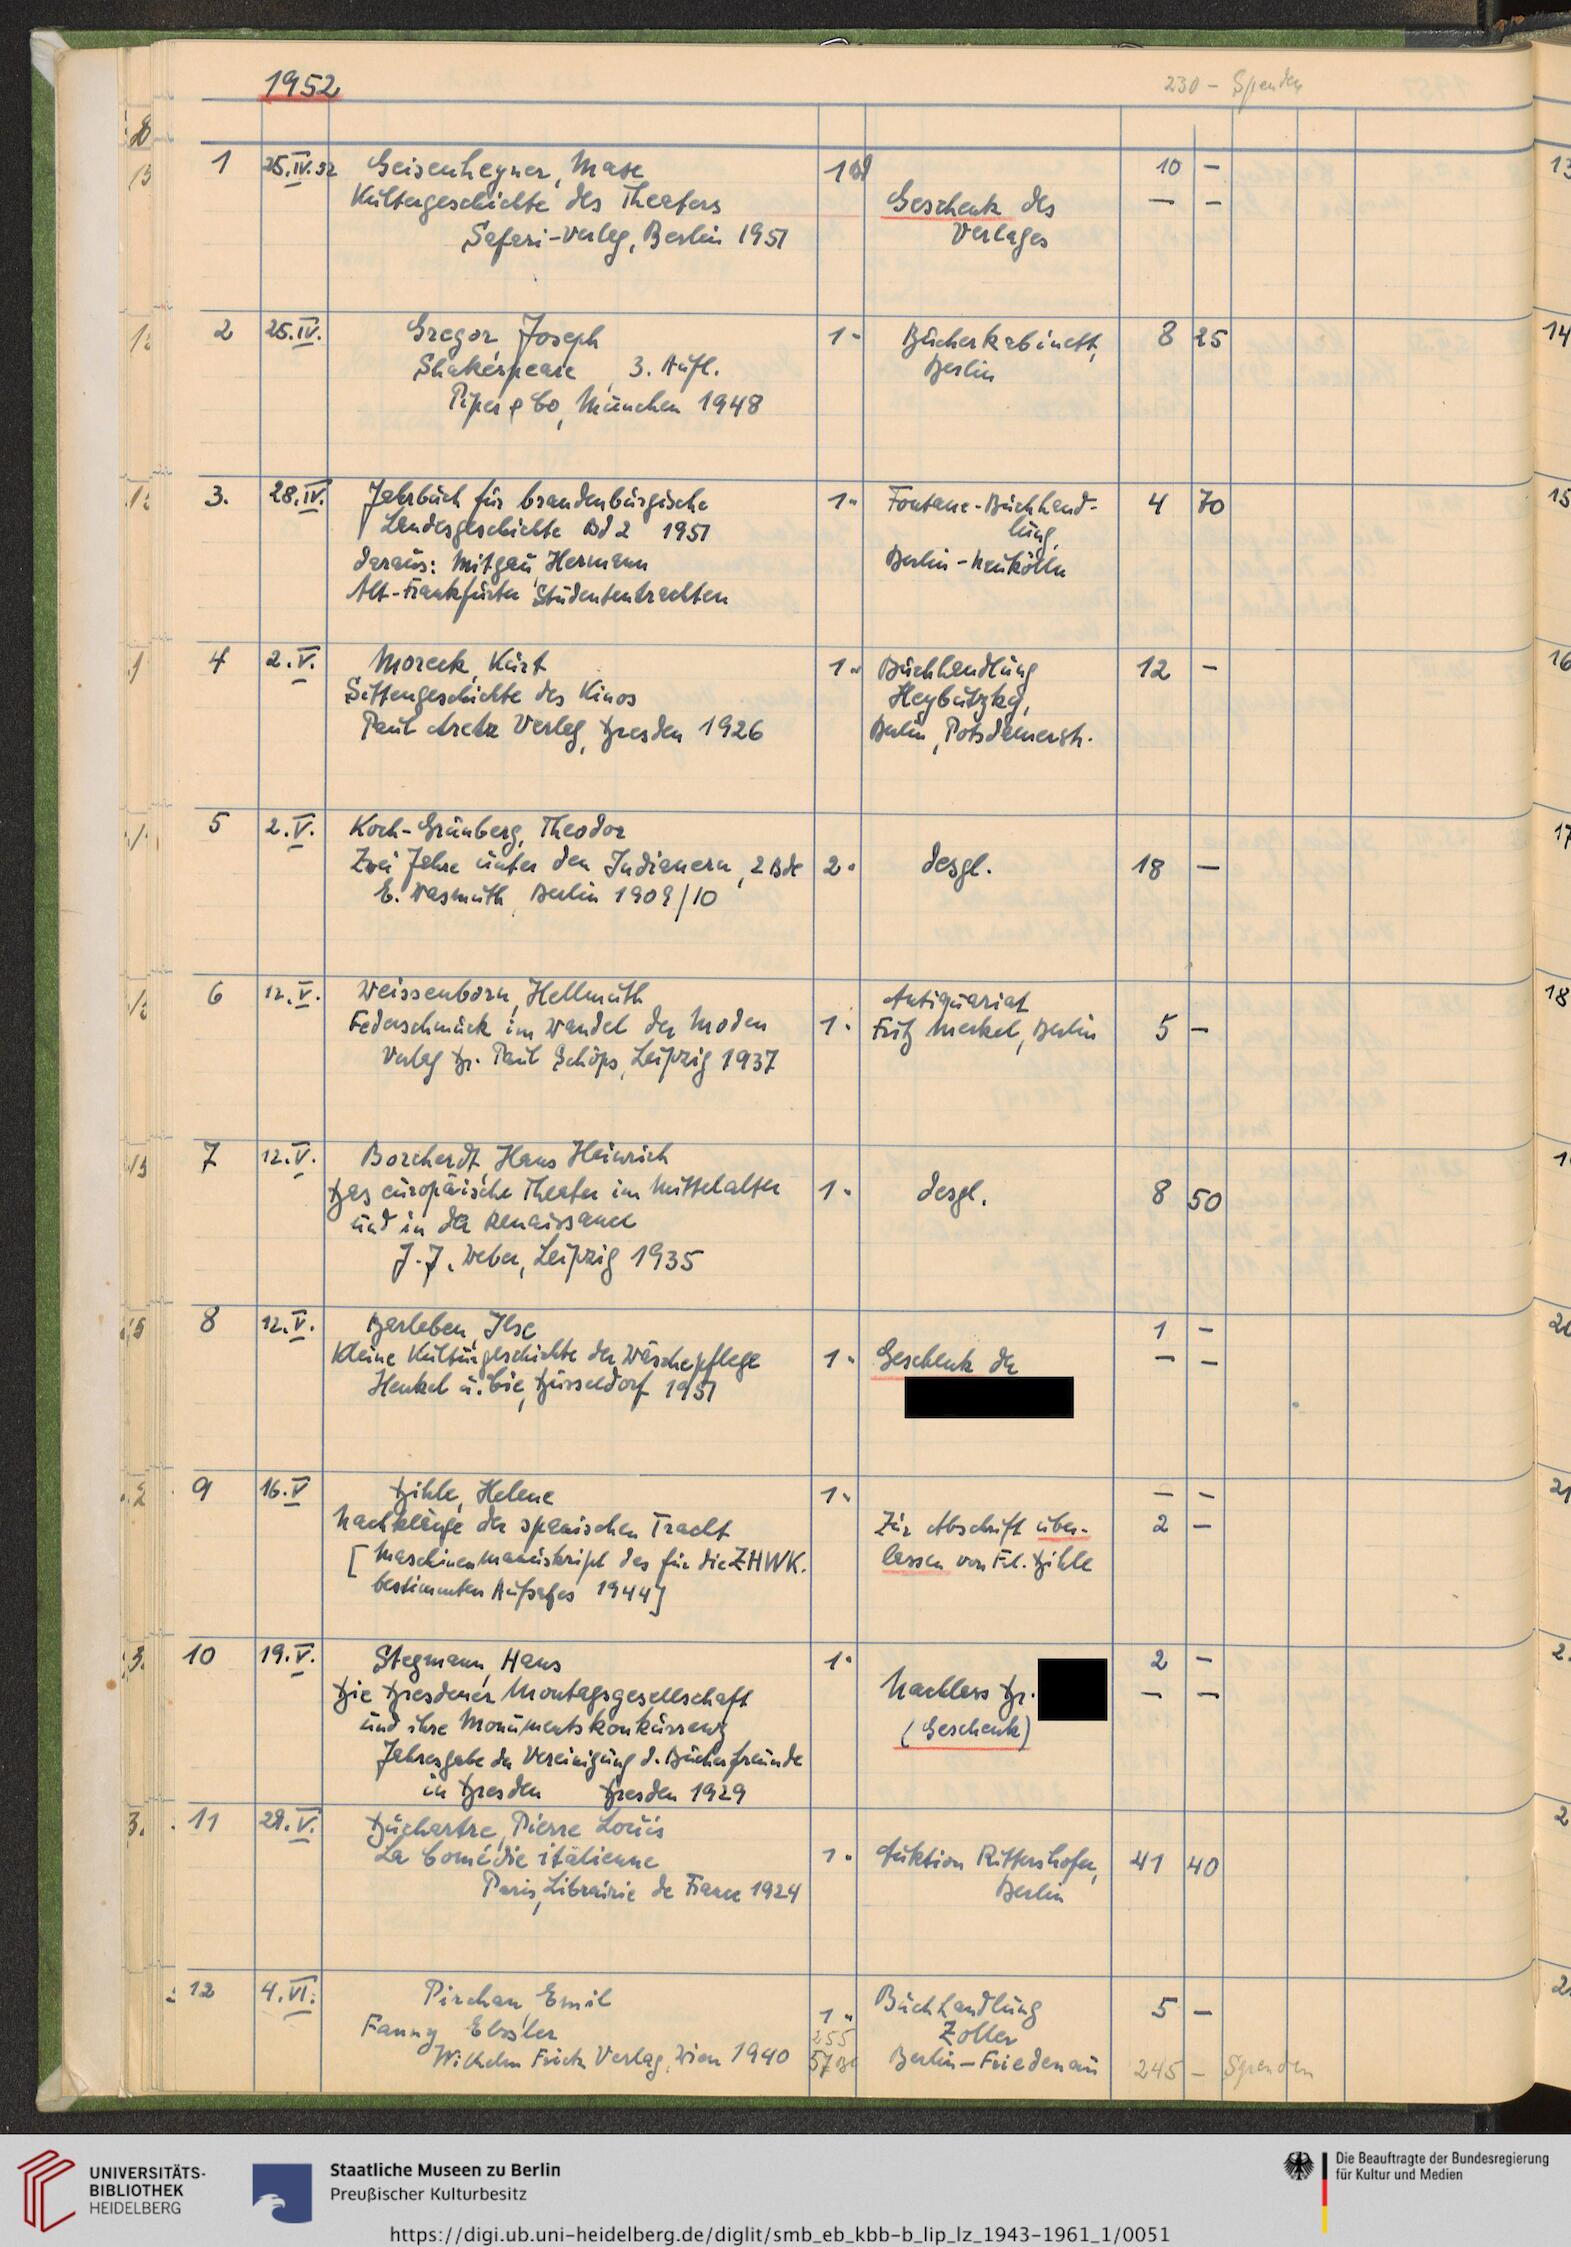 1952
230 - Spenden
1 25.IV.52 Geisenheyner, Max 1 Bd 10 -
Kulturgeschichte des Theaters Geschenk des - -
Safari-Verlag, Berlin 1951 Verlages
2 25.IV. Gregor, Joseph 1 " Bücherkabinett, 8 25
Shakespeare, 3. Aufl. Berlin
Piper & Co, München 1948
3. 28.IV. Jahrbuch für brandenburgische 1 " Fontane-Buchhand- 4 70
Landesgeschichte Bd 2 1951 lung,
daraus: Mitgau, Hermann Berlin-Neukölln
Alt-Frankfurter Studentrachten
4 2.V. Moreck, Kurt 1 " Buchhandlung 12 -
Sittengeschichte des Kinos Heybutzky,
Paul Aretz Verlag, Dresden 1926 Berlin, Potsdamerstr.
5 2.V. Koch-Grünberg, Theodor
Zwei Jahre unter den Indianern, 2 Bde 2 " desgl. 18 -
E. Wasmuth, Berlin 1909/10
6 12.V. Weissenborn, Hellmuth Antiquariat
Federschmuck im Wandel der Moden 1 " Fritz Merkel, Berlin 5 -
Verlag Dr. Paul Schöps, Leipzig 1937
7 12.V. Borcherdt, Hans Heinrich
Das europäische Theater im Mittelalter 1 " desgl. 8 50
und in der Renaissance
J. J. Weber, Leipzig 1935
8 12.V. Barleben, Ilse 1 -
Kleine Kulturgeschichte der Wäschepflege 1 " Geschenk der - -
Henkel u. Cie, Düsseldorf 1951
9 16.V Dihle, Helene 1 " - -
Nachklänge der spanischen Tracht Zur Abschrift über- 2 -
[Maschinenmanuskript des für die ZHWK. lassen von Frl. Dihle
bestimmten Aufsatzes 1944]
10 19.V. Stegmann, Hans 1 " 2 -
Die Dresdener Montagsgesellschaft Nachlass Dr. - -
und ihre Monumentskonkurrenz (Geschenk)
Jahresgabe der Vereinigung d. Bücherfreunde
in Dresden Dresden 1929
11 28.V. Duchartre, Pierre Louis
La Comédie italienne 1 " Auktion Rittershofer, 41 40
Paris, Librairie de France 1924 Berlin
12 4.VI. Pirchan, Emil 1 " Buchhandlung 5 -
Fanny Elssler 255 Zoller
Wilhelm Frick Verlag, Wien 1940 57 Bd Berlin-Friedenau 245 - Spenden
13
14
15
16
17
18
UNIVERSITÄTS-
BIBLIOTHEK
HEIDELBERG
Staatliche Museen zu Berlin
Preußischer Kulturbesitz
Die Beauftragte der Bundesregierung
für Kultur und Medien
https://digi.ub.uni-heidelberg.de/diglit/smb_eb_kbb-b_lip_lz_1943-1961_1/0051